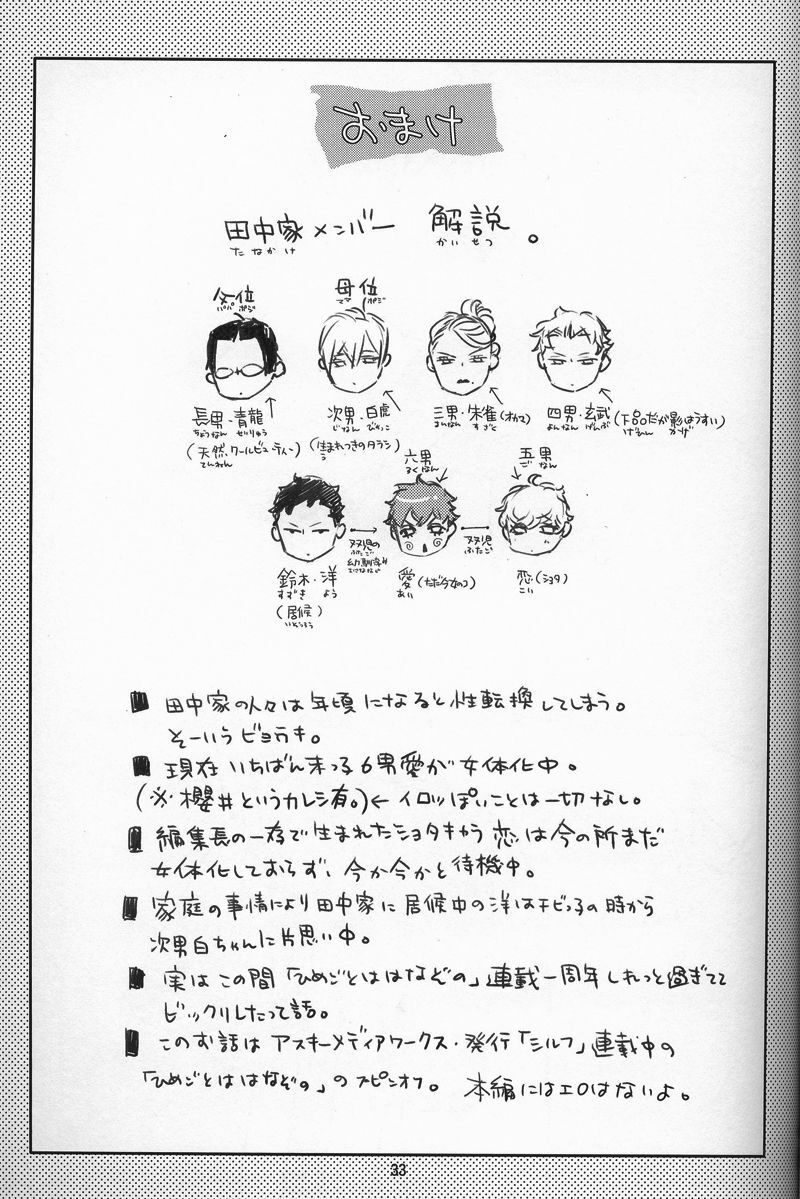 おまけ
田中家メンバー 解説。
たなかけ かいせつ
父位 母位
パパ ポジ ママ ポジ
長男・青龍 次男・白虎 三男・朱雀(オカマ) 四男・玄武(下品だが影はうすい)
ちょうなん せいりゅう じなん びゃっこ さんなん すざく よんなん げんぶ げひん かげ
(天然、クールビューティー) (生まれつきのタラシ)
てんねん う
六男 五男
ろくなん ごなん
双児の幼馴染み 双児
ふたご おさななじみ ふたご
鈴木・洋 愛(ただ今女のコ) 恋(ショタ)
すずき よう あい こい
(居候)
いそうろう
■ 田中家の人々は年頃になると性転換してしまう。
そーいうビョウキ。
■ 現在いちばん末っ子6男愛が女体化中。
(※櫻井というカレシ有。)←イロッぽいことは一切なし。
■ 編集長の一存で生まれたショタキャラ恋は今の所まだ
女体化しておらず、今か今かと待機中。
■ 家庭の事情により田中家に居候中の洋はチビっ子の時から
次男白ちゃんに片思い中。
■ 実はこの間「ひめごとははなぞの」連載一周年しれっと過ぎてて
ビックリしたって話。
■ このお話はアスキーメディアワークス・発行「シルフ」連載中の
「ひめごとははなぞの」のスピンオフ。 本編にはエロはないよ。
33